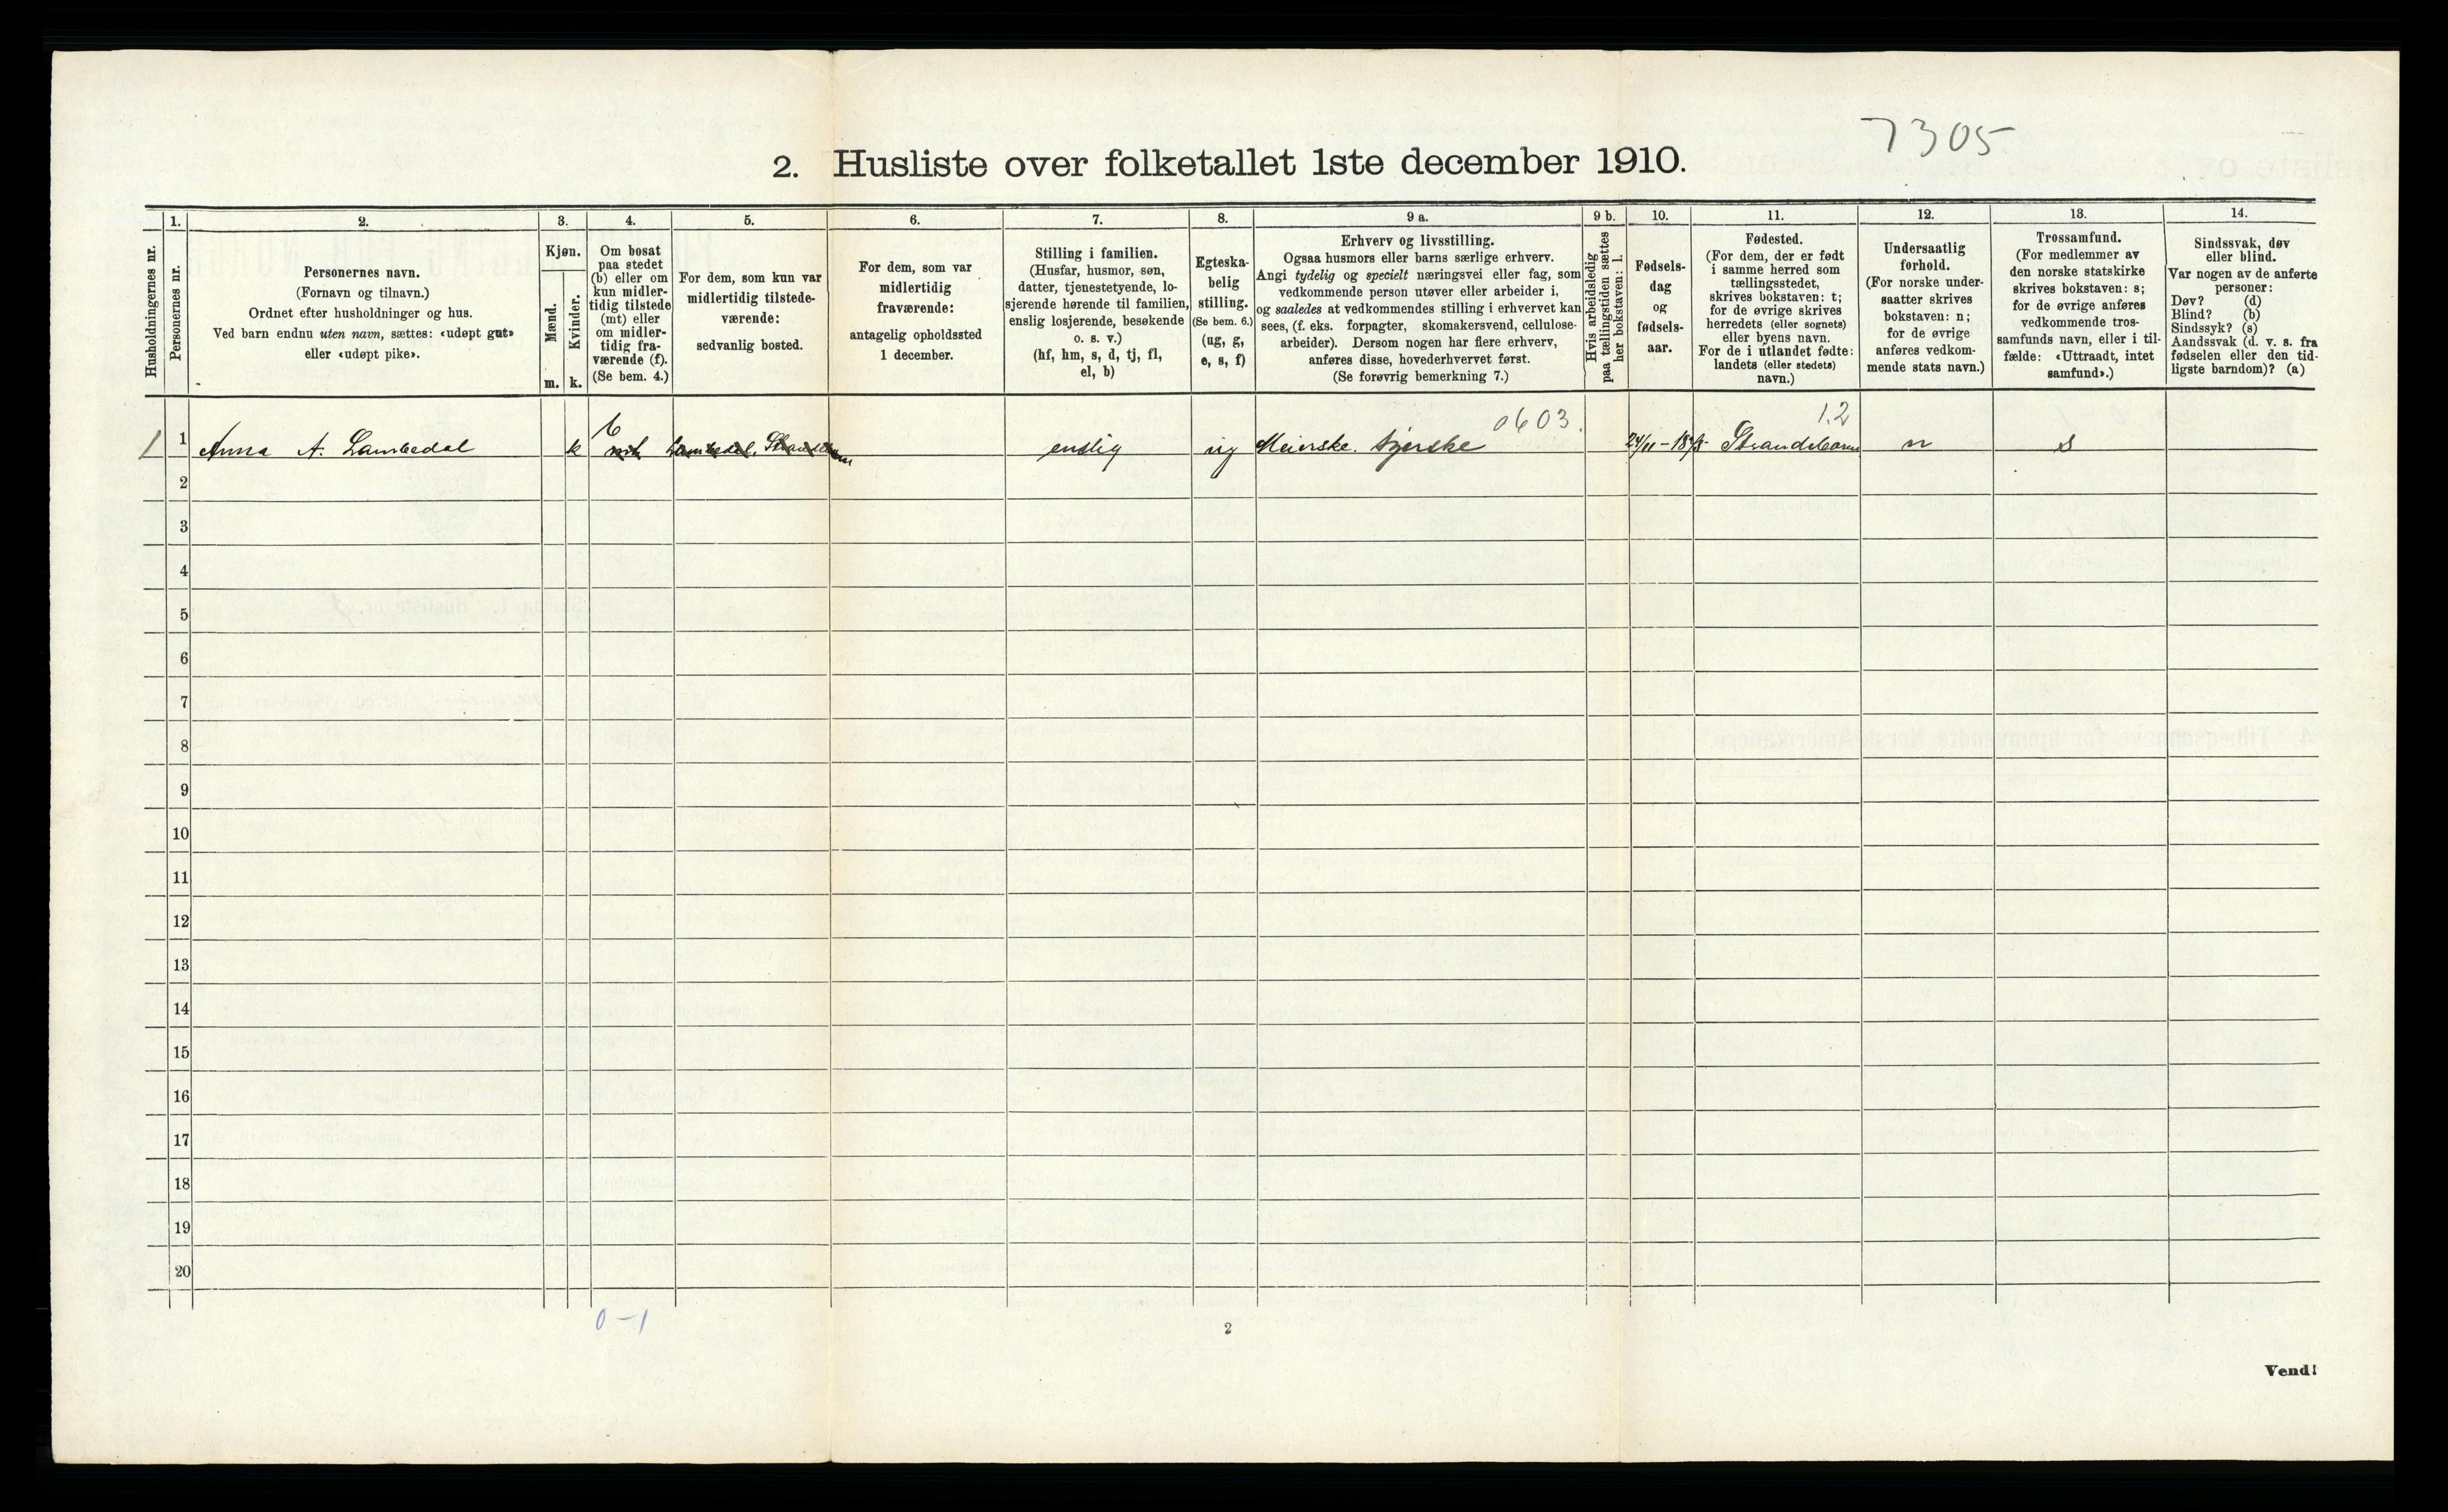 7305
2. Husliste over folketallet 1ste december 1910.
Husholdningernes nr.
1.
Personernes nr.
2.
Personernes navn.
(Fornavn og tilnavn.)
Ordnet efter husholdninger og hus.
Ved barn endnu uten navn, sættes: «udøpt gut»
eller «udøpt pike».
3.
Kjøn.
Mænd.
m.
Kvinder.
k.
4.
Om bosat
paa stedet
(b) eller om
kun midler-
tidig tilstede
(mt) eller
om midler-
tidig fra-
værende (f).
(Se bem. 4.)
5.
For dem, som kun var
midlertidig tilstede-
værende:
sedvanlig bosted.
6.
For dem, som var
midlertidig
fraværende:
antagelig opholdssted
1 december.
7.
Stilling i familien.
(Husfar, husmor, søn,
datter, tjenestetyende, lo-
sjerende hørende til familien,
enslig losjerende, besøkende
o. s. v.)
(hf, hm, s, d, tj, fl,
el, b)
8.
Egteska-
belig
stilling.
(Se bem. 6.)
(ug, g,
e, s, f)
9 a.
Erhverv og livsstilling.
Ogsaa husmors eller barns særlige erhverv.
Angi tydelig og specielt næringsvei eller fag, som
vedkommende person utøver eller arbeider i,
og saaledes at vedkommendes stilling i erhvervet kan
sees, (f. eks. forpagter, skomakersvend, cellulose-
arbeider). Dersom nogen har flere erhverv,
anføres disse, hovederhvervet først.
(Se forøvrig bemerkning 7.)
9 b.
Hvis arbeidsledig
paa tællingstiden sættes
her bokstaven: l.
10.
Fødsels-
dag
og
fødsels-
aar.
11.
Fødested.
(For dem, der er født
i samme herred som
tællingsstedet,
skrives bokstaven: t;
for de øvrige skrives
herredets (eller sognets)
eller byens navn.
For de i utlandet fødte:
landets (eller stedets)
navn.)
12.
Undersaatlig
forhold.
(For norske under-
saatter skrives
bokstaven: n;
for de øvrige
anføres vedkom-
mende stats navn.)
13.
Trossamfund.
(For medlemmer av
den norske statskirke
skrives bokstaven: s;
for de øvrige anføres
vedkommende tros-
samfunds navn, eller i til-
fælde: «Uttraadt, intet
samfund».)
14.
Sindssvak, døv
eller blind.
Var nogen av de anførte
personer:
Døv? (d)
Blind? (b)
Sindssyk? (s)
Aandssvak (d. v. s. fra
fødselen eller den tid-
ligste barndom)? (a)
b 0603. 12
1 1 Anna A. Lambedal k mt Lambedal, Strandebarm enslig ug Meierske 24/11-1878 Strandebarm n s
2
3
4
5
6
7
8
9
10
11
12
13
14
15
16
17
18
19
20
0-1
2
Vend!